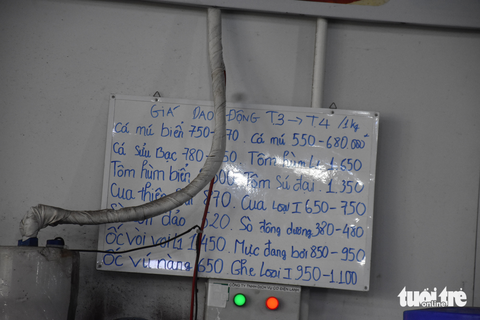 tuổi trẻ
GIÁ DAO ĐỘNG T3 → T4 /1kg
Cá mú biển 750- 70. Cá mú 550-680.000đ
Cá Sủu Bạc 780- 50. Tôm hùm 1.650
Tôm hùm biển 00. Tôm Sú đại 1.350
Cua 870. Cua Loại I 650-750
đảo 20. Sò đông dương 380-480
Ốc vòi voi 1.450. Mực đang bơi 850-950
Ốc vú nàng 650. Ghẹ Loại I 950-1.100
tuổi trẻ
online